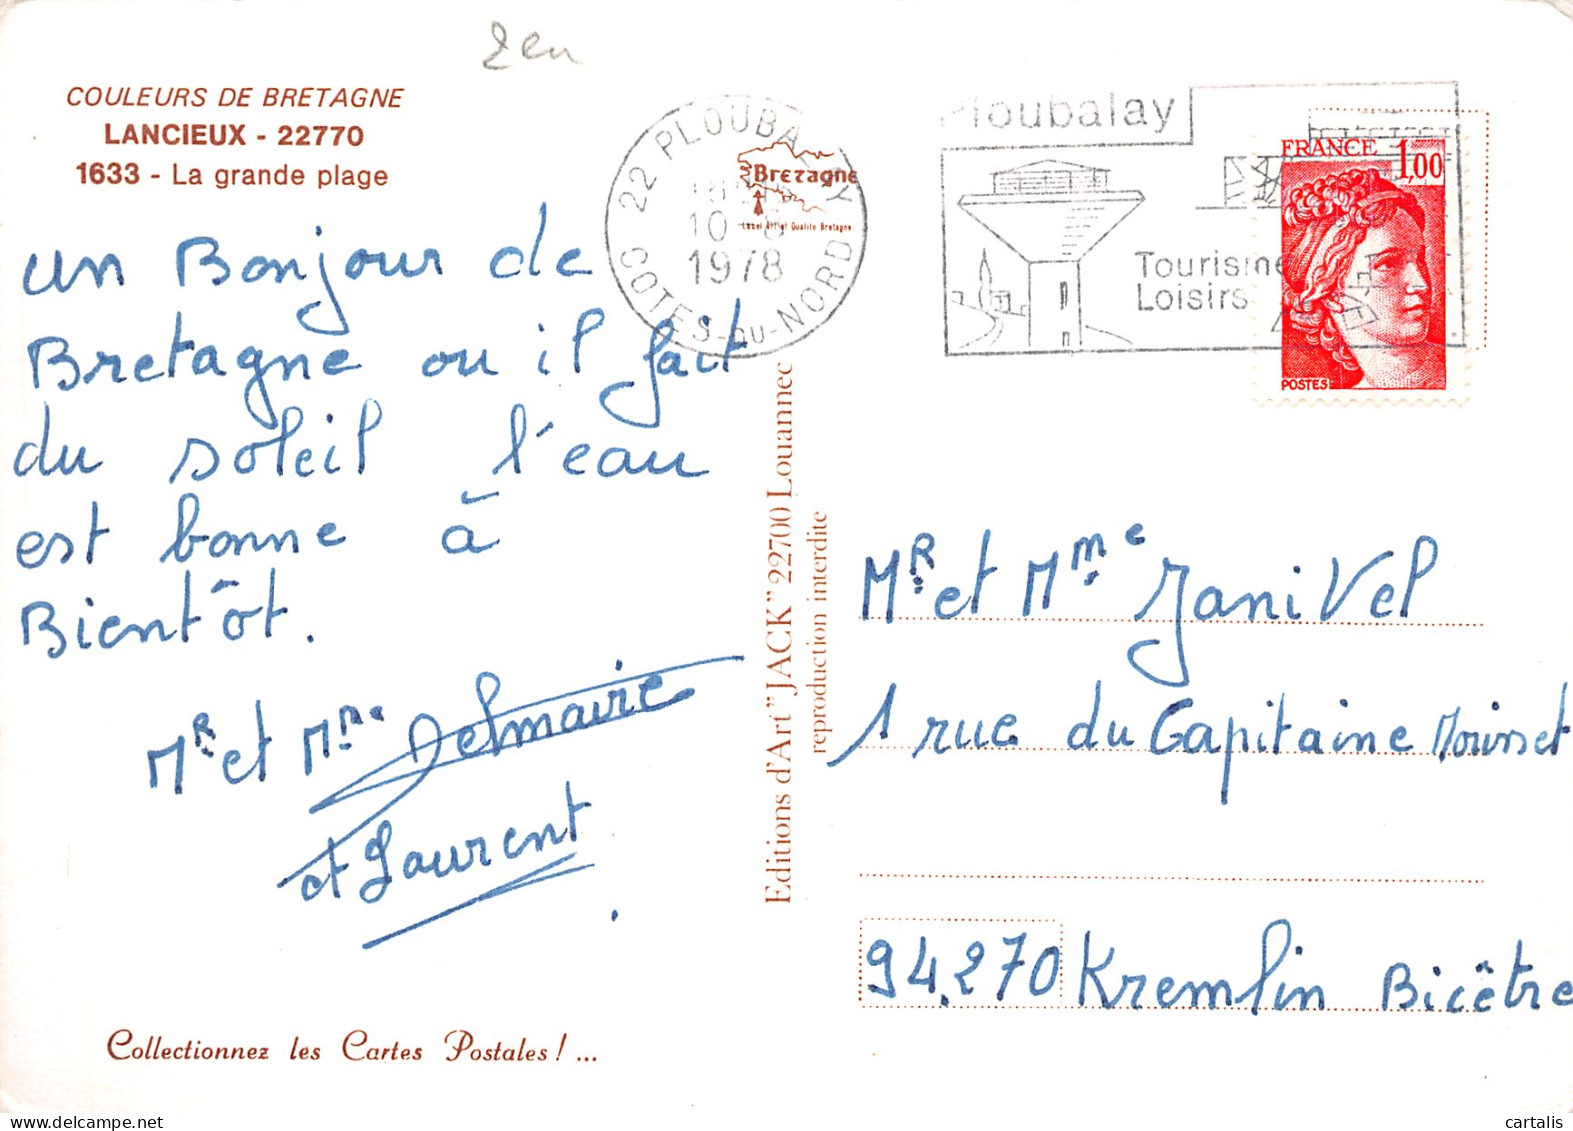 2en
COULEURS DE BRETAGNE
LANCIEUX - 22770
1633 - La grande plage
un Bonjour de
Bretagne ou il fait
du soleil l'eau
est bonne à
Bientôt.
Mr et Mme Delmaire
et Laurent
Collectionnez les Cartes Postales ! ...
22 PLOUBALAY
10-8
1978
COTES-DU-NORD
Bretagne
Label Art et Qualité Bretagne
Editions d'Art "JACK" 22700 Louannec
reproduction interdite
Ploubalay
Tourisme
Loisirs
FRANCE 1,00
POSTES
Mr et Mme Janivel
1 rue du Capitaine Moinet
94.270 Kremlin Bicêtre
cartalis